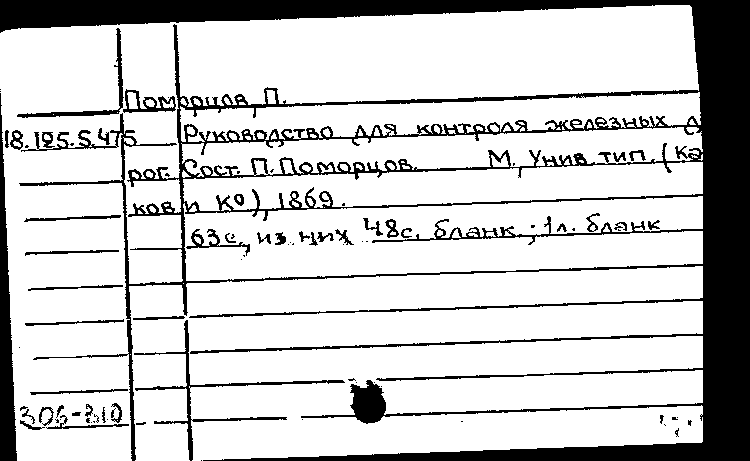 Поморцов, П.
18.125.5.475 Руководство для контроля железных д
рог. Сост. П. Поморцов. М., Унив. тип. (Ка
ков и К°), 1869.
63 с., из них 48 с. бланк.; 1 л. бланк
306-310